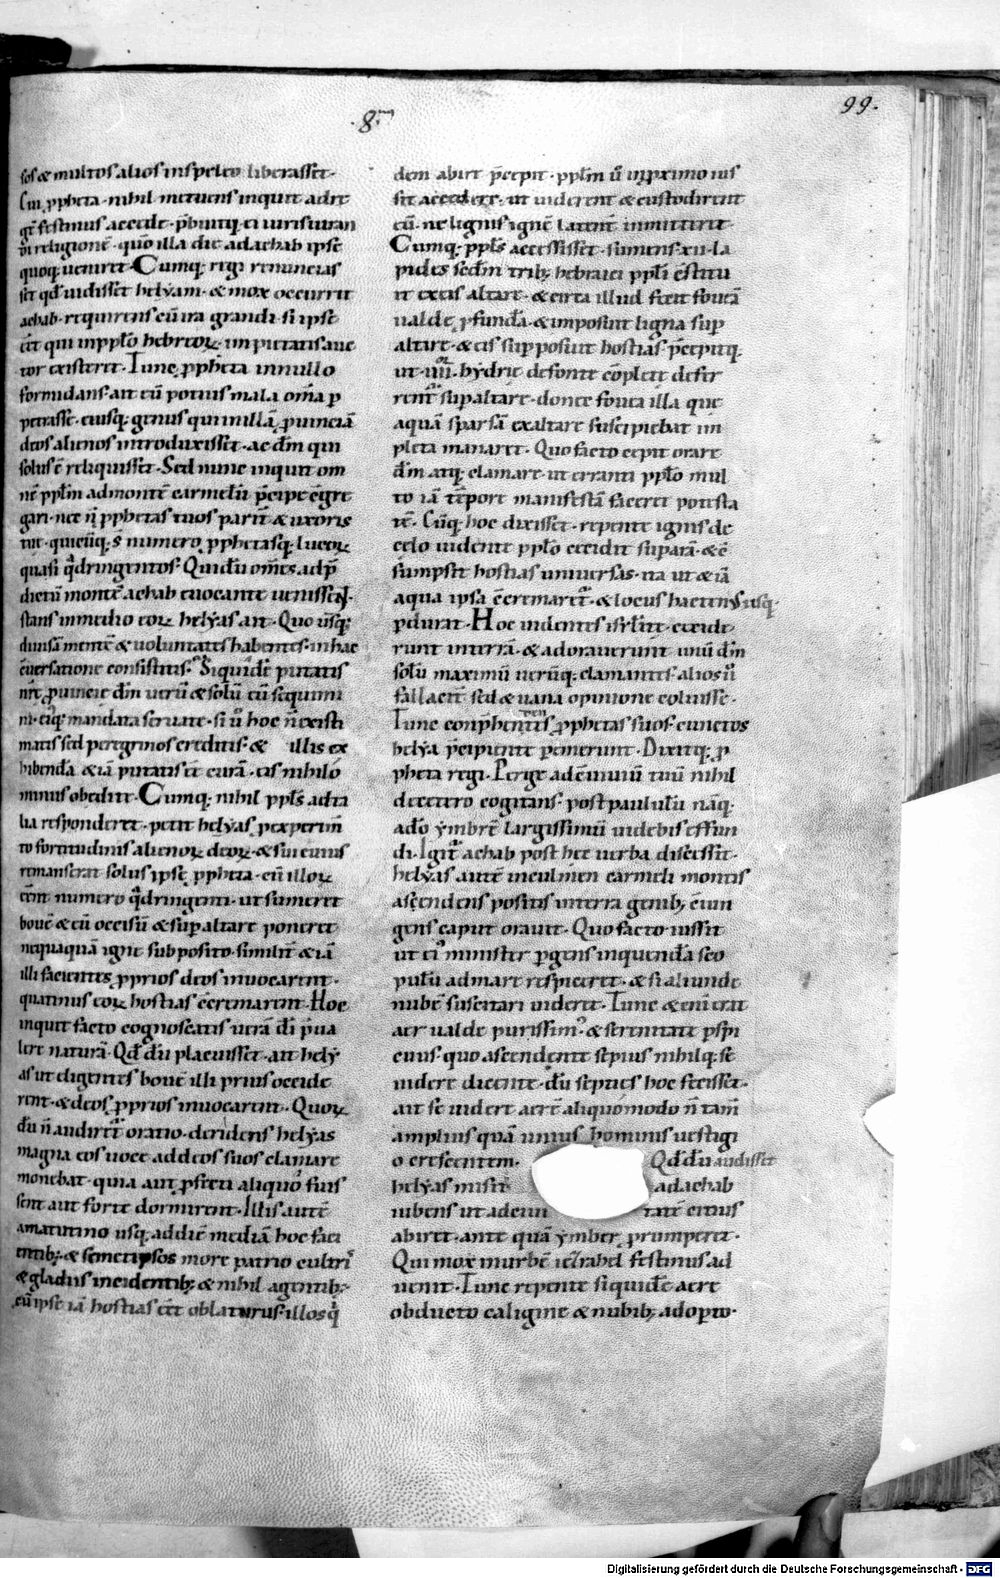 ·8·
99·
sos & multos alios inspeleo liberasset·
Cui ꝓpheta· nihil metuens inquit adre
gē festinus accede· p̄buitq; ei iurisiuran
di religionē· quo illa die adachab ipse
quoq; ueniret· Cumq; regi renuncias
set qđ uidisset helyam· & mox occurrit
achab· requirens cū ira grandi· si ipse
eēt qui inpplō hebreoꝝ· inpietatis auc
tor existeret· Tunc ꝓpheta innullo
formidans· ait eū potius mala om̄a ꝑ
petrasse· eiusq; genus qui inillā ꝓuinciā
deos alienos introduxisset· ac dm̄ qui
solus ē reliquisset· Sed nunc inquit om
nē pplm̄ admontē carmelū p̄cipe ēgre
gari· nec n̄ ꝓphetas tuos parit̄ & uxoris
tue· quicūq; s̄ numero ꝓphetasq; lucoꝝ
quasi q̄dringentos· Quidū om̄s adp̄
dictū montē achab euocante uenissent·
stans inmedio eoꝝ helyas ait· Quo usq;
diuisā mentē & uoluntates habentes· inhac
cuersatione consistitis· Siquidē putatis
nr̄e ꝓuincie dm̄ uerū & solū eū sequimi
ni· eiq; mandata seruate· si ū hoc n̄ existi
matis sed peregrinos creditis· & illis ex
hibenda & iā putatis eē curā· eis nihilo
minus obedite· Cumq; nihil ppls adta
lia responderet· petit helyas ꝑexperim̄
to fortitudinis alienoꝝ deoꝝ· & sui cuius
remanserat solus ipse ꝓpheta· cū illoꝝ
eēnt numero q̄dringenti· ut sumeret
bouē & eū occisū & suꝑaltare poneret
nequaquā igne subposito· similit̄ & iā
illi facientes ꝓprios deos inuocarent·
quatinus eoꝝ hostias ēcremarent· Hoc
inquit facto cognoscatis uerā di p̄ua
lere naturā· Qđ dū placuisset· ait hely
as ut eligentes bouē illi prius occide
rent· & deos ꝓprios inuocarent· Quoꝝ
dū n̄ audiret̄ oratio· deridens helyas
magna eos uoce addeos suos clamare
monebat· quia aut ꝓfecti aliquo fuis
sent aut forte dormirent· Illis autē
amatutino usq; addiē mediā hoc faci
entib; & semetipsos more patrio cultris
& gladiis incidentib; & nihil agentib;
cū ipse iā hostias eēt oblaturus· illos q̄
dem abire p̄cepit· pplm̄ ū inproximo ius
sit accedere· ut uiderent & custodirent
eū· ne lignis ignē latent̄ inmitteret·
Cumq; ppls accessisset· sumens ·xii· la
pides scdm̄ trib; hebraici ppli ēstitu
it exeis altare· & circa illud fecit foueā
ualde ꝓfundā· & imposuit ligna suꝑ
altare· & eis suꝑposuit hostias· p̄cepitq;
ut ·iiii· hydrie defonte cōplete defer
rent̄ suꝑaltare· donec fouea illa que
aquā sparsā exaltare suscipiebat im
pleta manaret· Quo facto cepit orare
dm̄ atq; clamare· ut erranti pplo mul
to iā tēpore manifestā faceret potesta
tē· Cūq; hoc dixisset· repente ignis de
celo uidente pplo cecidit suꝑarā· & ē
sumpsit hostias uniuersas· ita ut & iā
aqua ipsa ēcremaret̄· & locus hactenus usq;
ꝑdurat· Hoc uidentes isrl̄ite· cecide
runt interrā· & adorauerunt unū dm̄
solū maximū uerūq; clamantes· alios ū
fallacen̄ sed & uana opinione coluisse·
Tunc conphendentes ꝓphetas suos· cunctos
helya p̄cipiente ꝑemerunt· Dixitq; ꝓ
pheta regi· Perge adēuiuiū tuū nihil
decetero cogitans· post paululū nāq;
ado ymbrē largissimū uidebis effun
di· Igit̄ achab post hec uerba discessit·
helyas autē inculmen carmeli montis
ascendens positis interra genib; ēiun
gens caput orauit· Quo facto iussit
ut ei minister ꝑgens inquendā sco
pulū admare respiceret· & si aliunde
nubē suscitari uideret· Tunc & enī erat
aer ualde purissim̄· & serenitate ꝑspi
cuus· quo ascendente sepius nihilq; se
uidere dicente· dū septies hoc fecisset·
ait se uidere aerē aliquomodo n̄ tam̄
amplius quā unius hominis uestigi
o crescentem· Qđ dū audisset
helyas misit adachab
iubens ut adciui tatē citius
abiret· ante quā ymber ꝓrumperet·
Qui mox inurbē iezrahel festinus ad
uenit· Tunc repente siquidē aere
obducto caligine & nubib; adoꝑto·
Digitalisierung gefördert durch die Deutsche Forschungsgemeinschaft - DFG